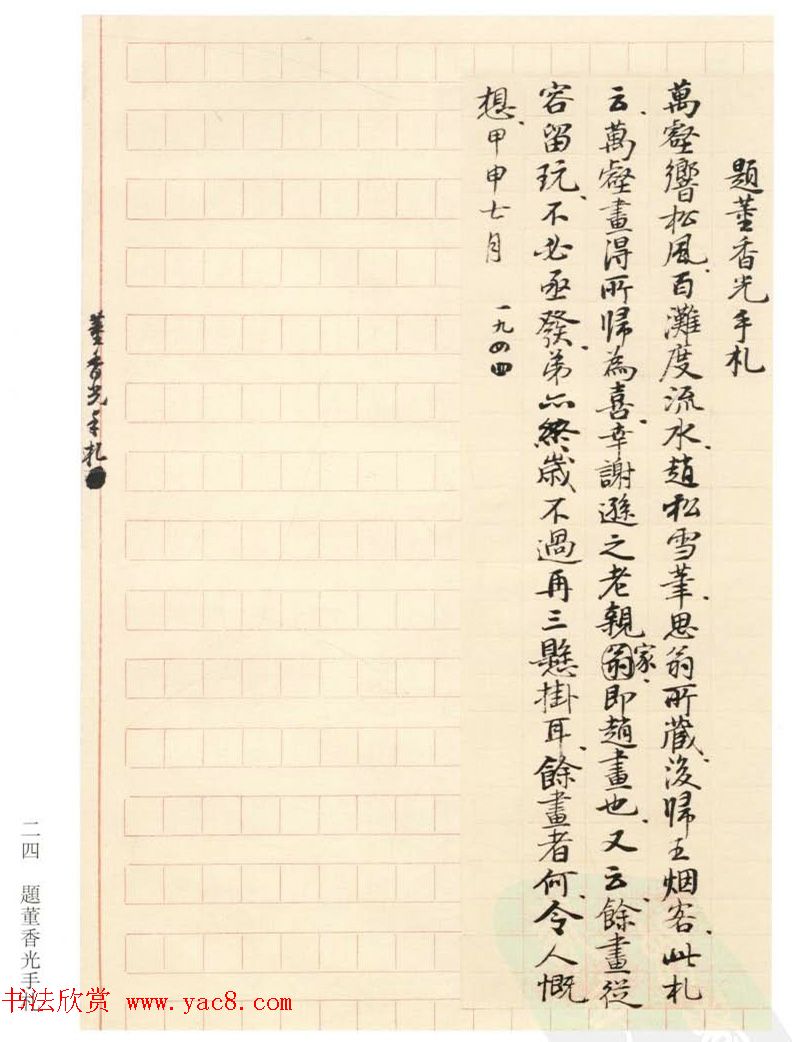 題董香光手札
萬壑響松風、百灘度流水、趙松雪筆、思翁所藏、後歸王烟客、此札
云、萬壑畫得所歸為喜、幸謝遜之老親翁家、即趙畫也、又云、餘畫從
容留玩、不必亟發、弟亦終歲不過再三懸掛耳、餘畫者何、令人慨
想、甲申七月 一九四四
董香光手札
二四 題董香光手札
书法欣赏 www.yac8.com